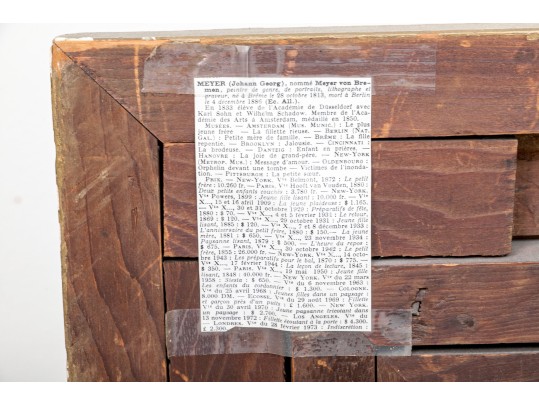 MEYER (Johann Georg), nommé Meyer von Bre-
men, peintre de genre, de portraits, lithographe et
graveur, né à Brême le 28 octobre 1813, mort à Berlin
le 4 décembre 1886 (Ec. All.).
En 1833 élève de l'Académie de Düsseldorf avec
Karl Sohn et Wilhelm Schadow. Membre de l'Aca-
démie des Arts à Amsterdam, médaillé en 1850.
MUSÉES. — AMSTERDAM (MUS. MUNIC.) : Le plus
jeune frère — La fillette rieuse. — BERLIN (NAT.
GAL.) : Petite mère de famille. — BRÊME : La fille
repentie. — BROOKLYN : Jalouse. — CINCINNATI :
La brodeuse. — DANTZIG : Enfant en prières. —
HANOVRE : La joie de grand-père. — NEW-YORK
(METROP. MUS.) : Message d'amour. — OLDENBOURG :
Orphelin devant une tombe — Victimes de l'inonda-
tion. — PITTSBURGH : La petite sœur.
PRIX. — NEW-YORK. Vte Belmont, 1872 : Le petit
frère : 10.260 fr. — PARIS. Vte Hoeft van Vouden, 1880 :
Deux petits enfants couchés : 3.780 fr. — NEW-YORK.
Vte Powers, 1899 : Jeune fille lisant : 10.000 fr. — Vte
X..., 15 et 16 avril 1909 : La jeune glaneuse : $ 1.165.
— Vte X..., 30 et 31 octobre 1929 : Préparatifs de fête,
1880 : $ 70. — Vte X..., 4 et 5 février 1931 : Le retour,
1869 : $ — Vte X..., 29 octobre 1931 : Jeune fille
lisant, 1885 : $ 120. — Vte X..., 7 et 8 décembre 1933 :
L'anniversaire du petit frère, 1880 : $ 150. — La jeune
mère, 1881 : $ 650. — Vte X..., 23 novembre 1934 :
Paysanne lisant, 1879 : $ 300. — L'heure du repos :
$ 675. — PARIS. Vte X..., 30 octobre 1942 : Le petit
frère, 1855 : 26.000 fr. — NEW-YORK. Vte X..., 14 octo-
bre 1943 : Les préparatifs pour le bal, 1870 : $ 775. —
Vte X..., 17 février 1944 : La leçon de lecture, 1845 :
$ 350. — PARIS. Vte X..., 19 mai 1950 : Jeune fille
lisant, 1848 : 40.000 fr. — NEW YORK. Vte du 22 mars
1958 : Siesta : $ 650. — Vte du 6 novembre 1963 :
Les enfants du cordonnier : $ 1.300. — COLOGNE.
Vte du 25 avril 1968 : Jeunes filles dans un paysage :
8.000 DM. — ECOSSE. Vte du 29 août 1969 : Fillette
et garçon près d'un puits : £ 1.600. — NEW YORK.
Vte du 30 avril 1970 : Jeune paysanne tricotant dans
un paysage : $ 2.700. — LOS ANGELES. Vte du
13 novembre 1972 : Fillette écoutant à la porte : $ 4.300.
— LONDRES. Vte du 28 février 1973 : Indiscrétion :
£ 2.300